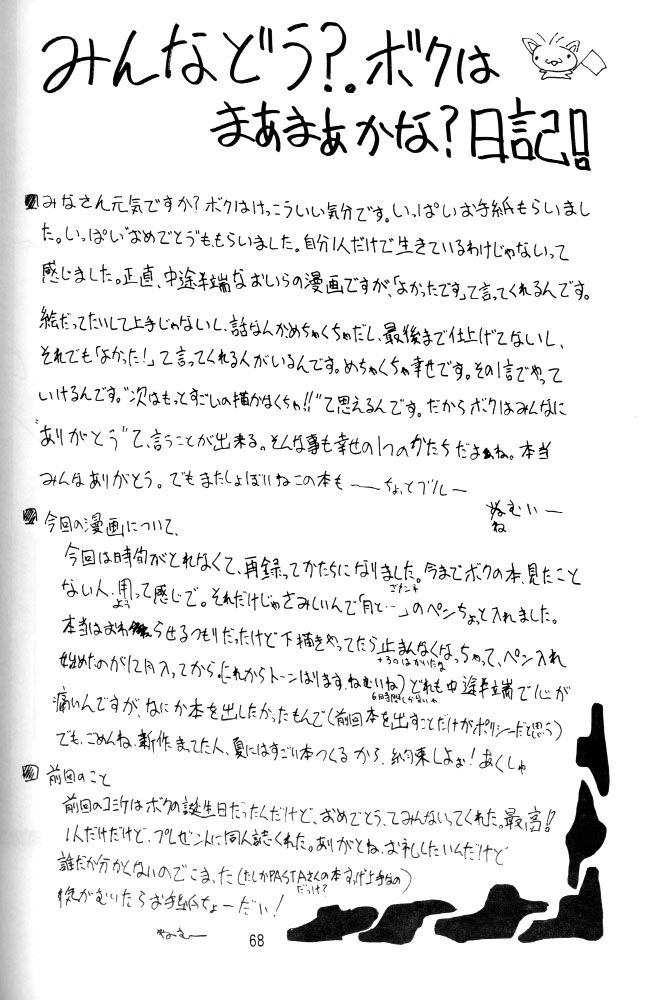 みんなどう?。ボクは
まあまあかな?日記!!
みなさん元気ですか?ボクはけっこういい気分です。いっぱいお手紙もらいまし
た。いっぱい"おめでとう"ももらいました。自分1人だけで生きているわけじゃないって
感じました。正直、中途半端なおいらの漫画ですが、「よかったです」て言ってくれるんです。
絵だってたいして上手じゃないし、話なんかめちゃくちゃだし、最後まで仕上げてないし、
それでも「よかった!」て言ってくれる人がいるんです。めちゃくちゃ幸せです。その1言でやって
いけるんです。"次はもっとすごいの描かなくちゃ!!"て思えるんです。だからボクはみんなに
"ありがとう"て、言うことが出来る。そんな事も幸せの1つのかたちだよぉね。本当
みんなありがとう。でもまたしょぼいねこの本も ―ちょっとブルー
ねむいー
ね
今回の漫画について、
今回は時間がとれなくて、再録ってかたちになりました。今までボクの本、見たこと
ない人、用って感じで。それだけじゃさみしいんで「月と…」のペンちょっと入れました。
よう
本当はおわらせるつもりだったけど下描きやってたら止まんなくなっちゃって、ペン入れ
+30はかいたな
始めたのが12月入ってから。(これからトーンはります、ねむいね)どれも中途半端で心が
6時間しかないや
痛いんですが、なにか本を出したかったもんで(前回本を出すことだけがポリシーだと思う)
でも、ごめんね、新作まってた人、夏にはすごい本つくるから、約束しよぉ!あくしゅ
前回のこと
前回のコミケはボクの誕生日だったんだけど、おめでとう、てみんないってくれた。最高!!
1人だけだけど、プレゼントに同人誌くれた。ありがとね、お礼したいんだけど
誰だか分かんないのでこまった(たしかPASTAさんの本すっげぇ上手なの)
だっけ?
気がむいたらお手紙ちょーだい!
ねむー
68